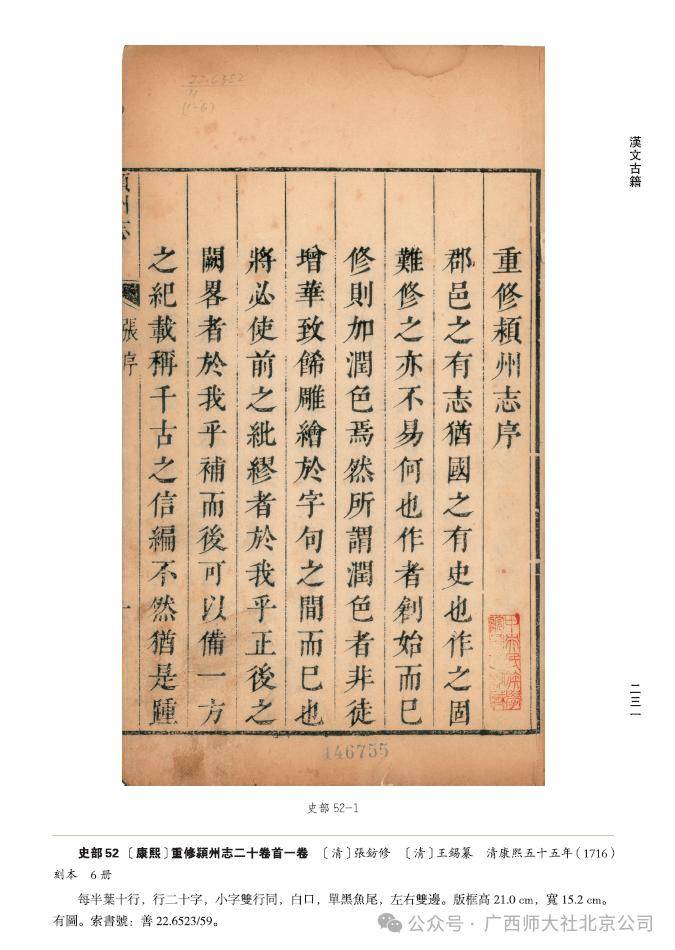 漢文古籍
二三一
22.6352
11
(1-6)
重修頴州志序
郡邑之有志猶國之有史也作之固
難修之亦不易何也作者創始而已
修則加潤色焉然所謂潤色者非徒
增華致餙雕繪於字句之間而已也
將必使前之紕繆者於我乎正後之
闕畧者於我乎補而後可以備一方
之紀載稱千古之信編不然猶是踵
張序
一
146755
史部 52-1
史部 52 〔康熙〕重修潁州志二十卷首一卷 〔清〕張鈁修 〔清〕王錫纂 清康熙五十五年(1716)
刻本 6 册
每半葉十行，行二十字，小字雙行同，白口，單黑魚尾，左右雙邊。版框高 21.0 cm，寬 15.2 cm。
有圖。索書號：善 22.6523/59。
公众号 · 广西师大社北京公司